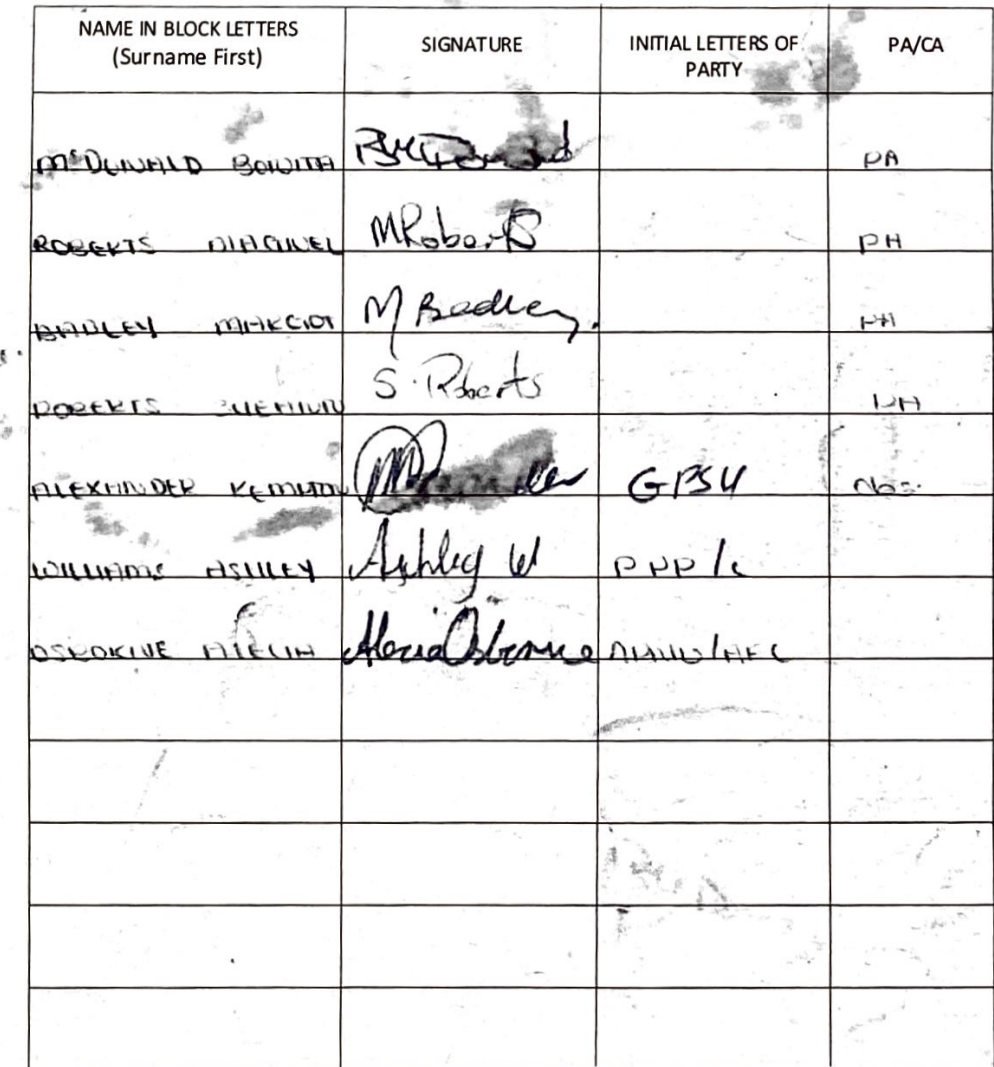 NAME IN BLOCK LETTERS
(Surname First)
SIGNATURE
INITIAL LETTERS OF
PARTY
PA/CA
McDONALD BONITA
PA
ROBERTS
MRoberts
PA
BRADLEY MARGOT
M Bradley.
PA
ROBERTS
S. Roberts
PA
ALEXANDER
GPSU
WILLIAMS ASHLEY
Ashley W
PPP/C
OSBORNE ALECIA
Alecia Osborne